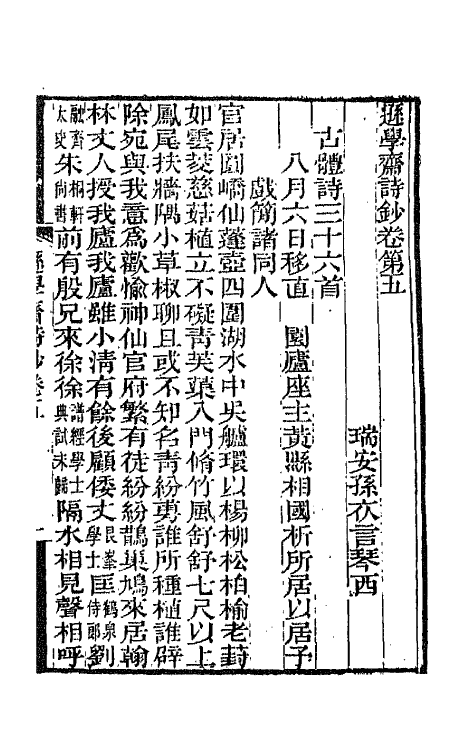 遜學齋詩鈔卷第五
瑞安孫衣言琴西
古體詩三十六首
八月六日移直　園廬座主黃縣相國析所居以居予
戲簡諸同人
官居圓嶠仙蓬壺四圍湖水中吳艫環以楊柳松柏榆老葑
如雲菱慈姑植立不礙靑芙蕖入門脩竹風舒舒七尺以上
鳳尾扶牆隅小草椒聊且或不知名靑紛旉誰所種植誰辟
除宛與我意爲歡愉神仙官府繁有徒紛紛鵲巢鳩來居翰
林丈人授我廬我廬雖小清有餘後顧倭丈艮峯學士匡鶴泉侍郎劉
融齋太史朱桐軒尙書前有殷兄來徐徐譜經學士典試未歸隔水相見聲相呼
遜學齋詩鈔卷五
一